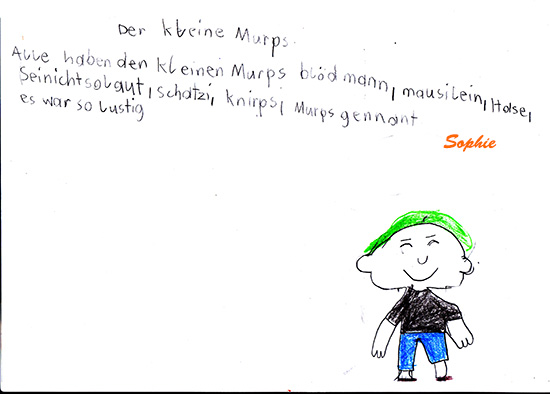 Der kleine Murps.
Alle haben den kleinen Murps blödmann, mausilein, Hase,
Seinichtsolaut, schatzi, knirps, Murps gennant
es war so lustig
Sophie